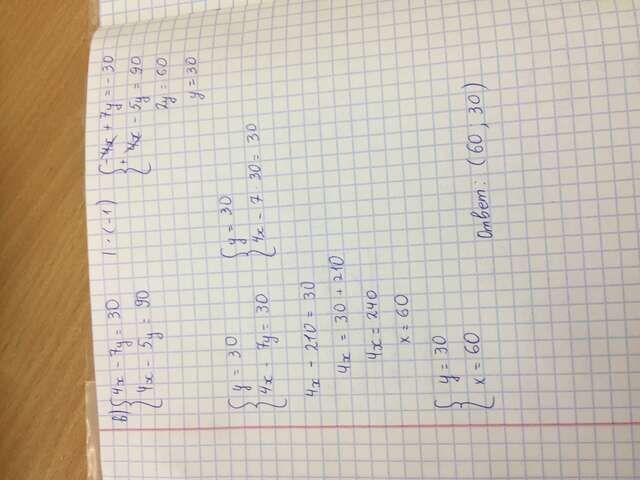 в) {4x - 7y = 30 | · (-1) {-4x + 7y = -30
{4x - 5y = 90 + {4x - 5y = 90
2y = 60
y = 30
{y = 30 {y = 30
{4x - 7y = 30 {4x - 7 · 30 = 30
4x - 210 = 30
4x = 30 + 210
4x = 240
x = 60
{y = 30
{x = 60
Ответ: (60, 30)